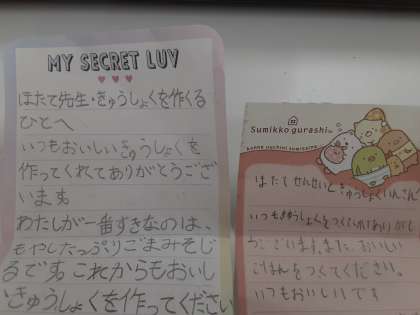 MY SECRET LUV
ほたて先生・きゅうしょくを作くる
ひとへ
いつもおいしいきゅうしょくを
作ってくれてありがとうござ
います。
わたしが一番すきなのは、
もやしたっぷりごまみそじ
るです。これからもおいし
いきゅうしょくを作ってください
Sumikko gurashi
ほたてせんせいときゅうしょくいんさん
いつもきゅうしょくをつくってくれてありがと
うございます。また、おいしい
ごはんをつくってください。
いつもおいしいです